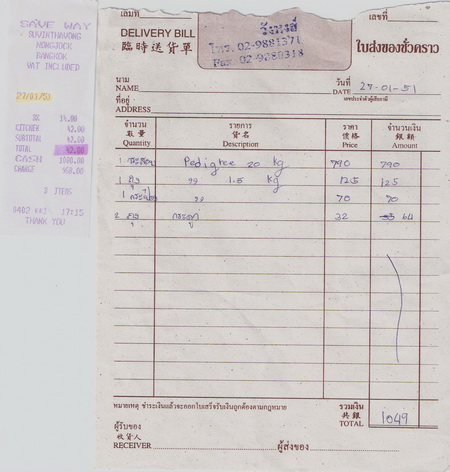 SAVE WAY
SUVINTHAVONG
NONGJOCK
BANGKOK
VAT INCLUDED
27/01/51
3X 14.00
KITCHEN 42.00
SUBTOTAL 42.00
TOTAL 42.00
CASH 1000.00
CHANGE 958.00
3 ITEMS
17:15
THANK YOU
เล่มที่
เลขที่
DELIVERY BILL
臨時送貨單
โทร. 02-9881371
Fax. 02-9880318
ใบส่งของชั่วคราว
นาม
NAME
วันที่
DATE 27-01-51
เลขประจำตัวผู้เสียภาษี
ที่อยู่
ADDRESS
จำนวน รายการ ราคา จำนวนเงิน
數量 貨名 價格 銀額
Quantity Description Price Amount
1 Pedigree 20 kg 790 790
1 ถุง " 1.5 kg 125 125
1 " 70 70
2 ถุง 32 64
หมายเหตุ ชำระเงินแล้วจะออกใบเสร็จรับเงินถูกต้องตามกฎหมาย
รวมเงิน
共銀
TOTAL 1049
ผู้รับของ
收貨人
RECEIVER
ผู้ส่งของ